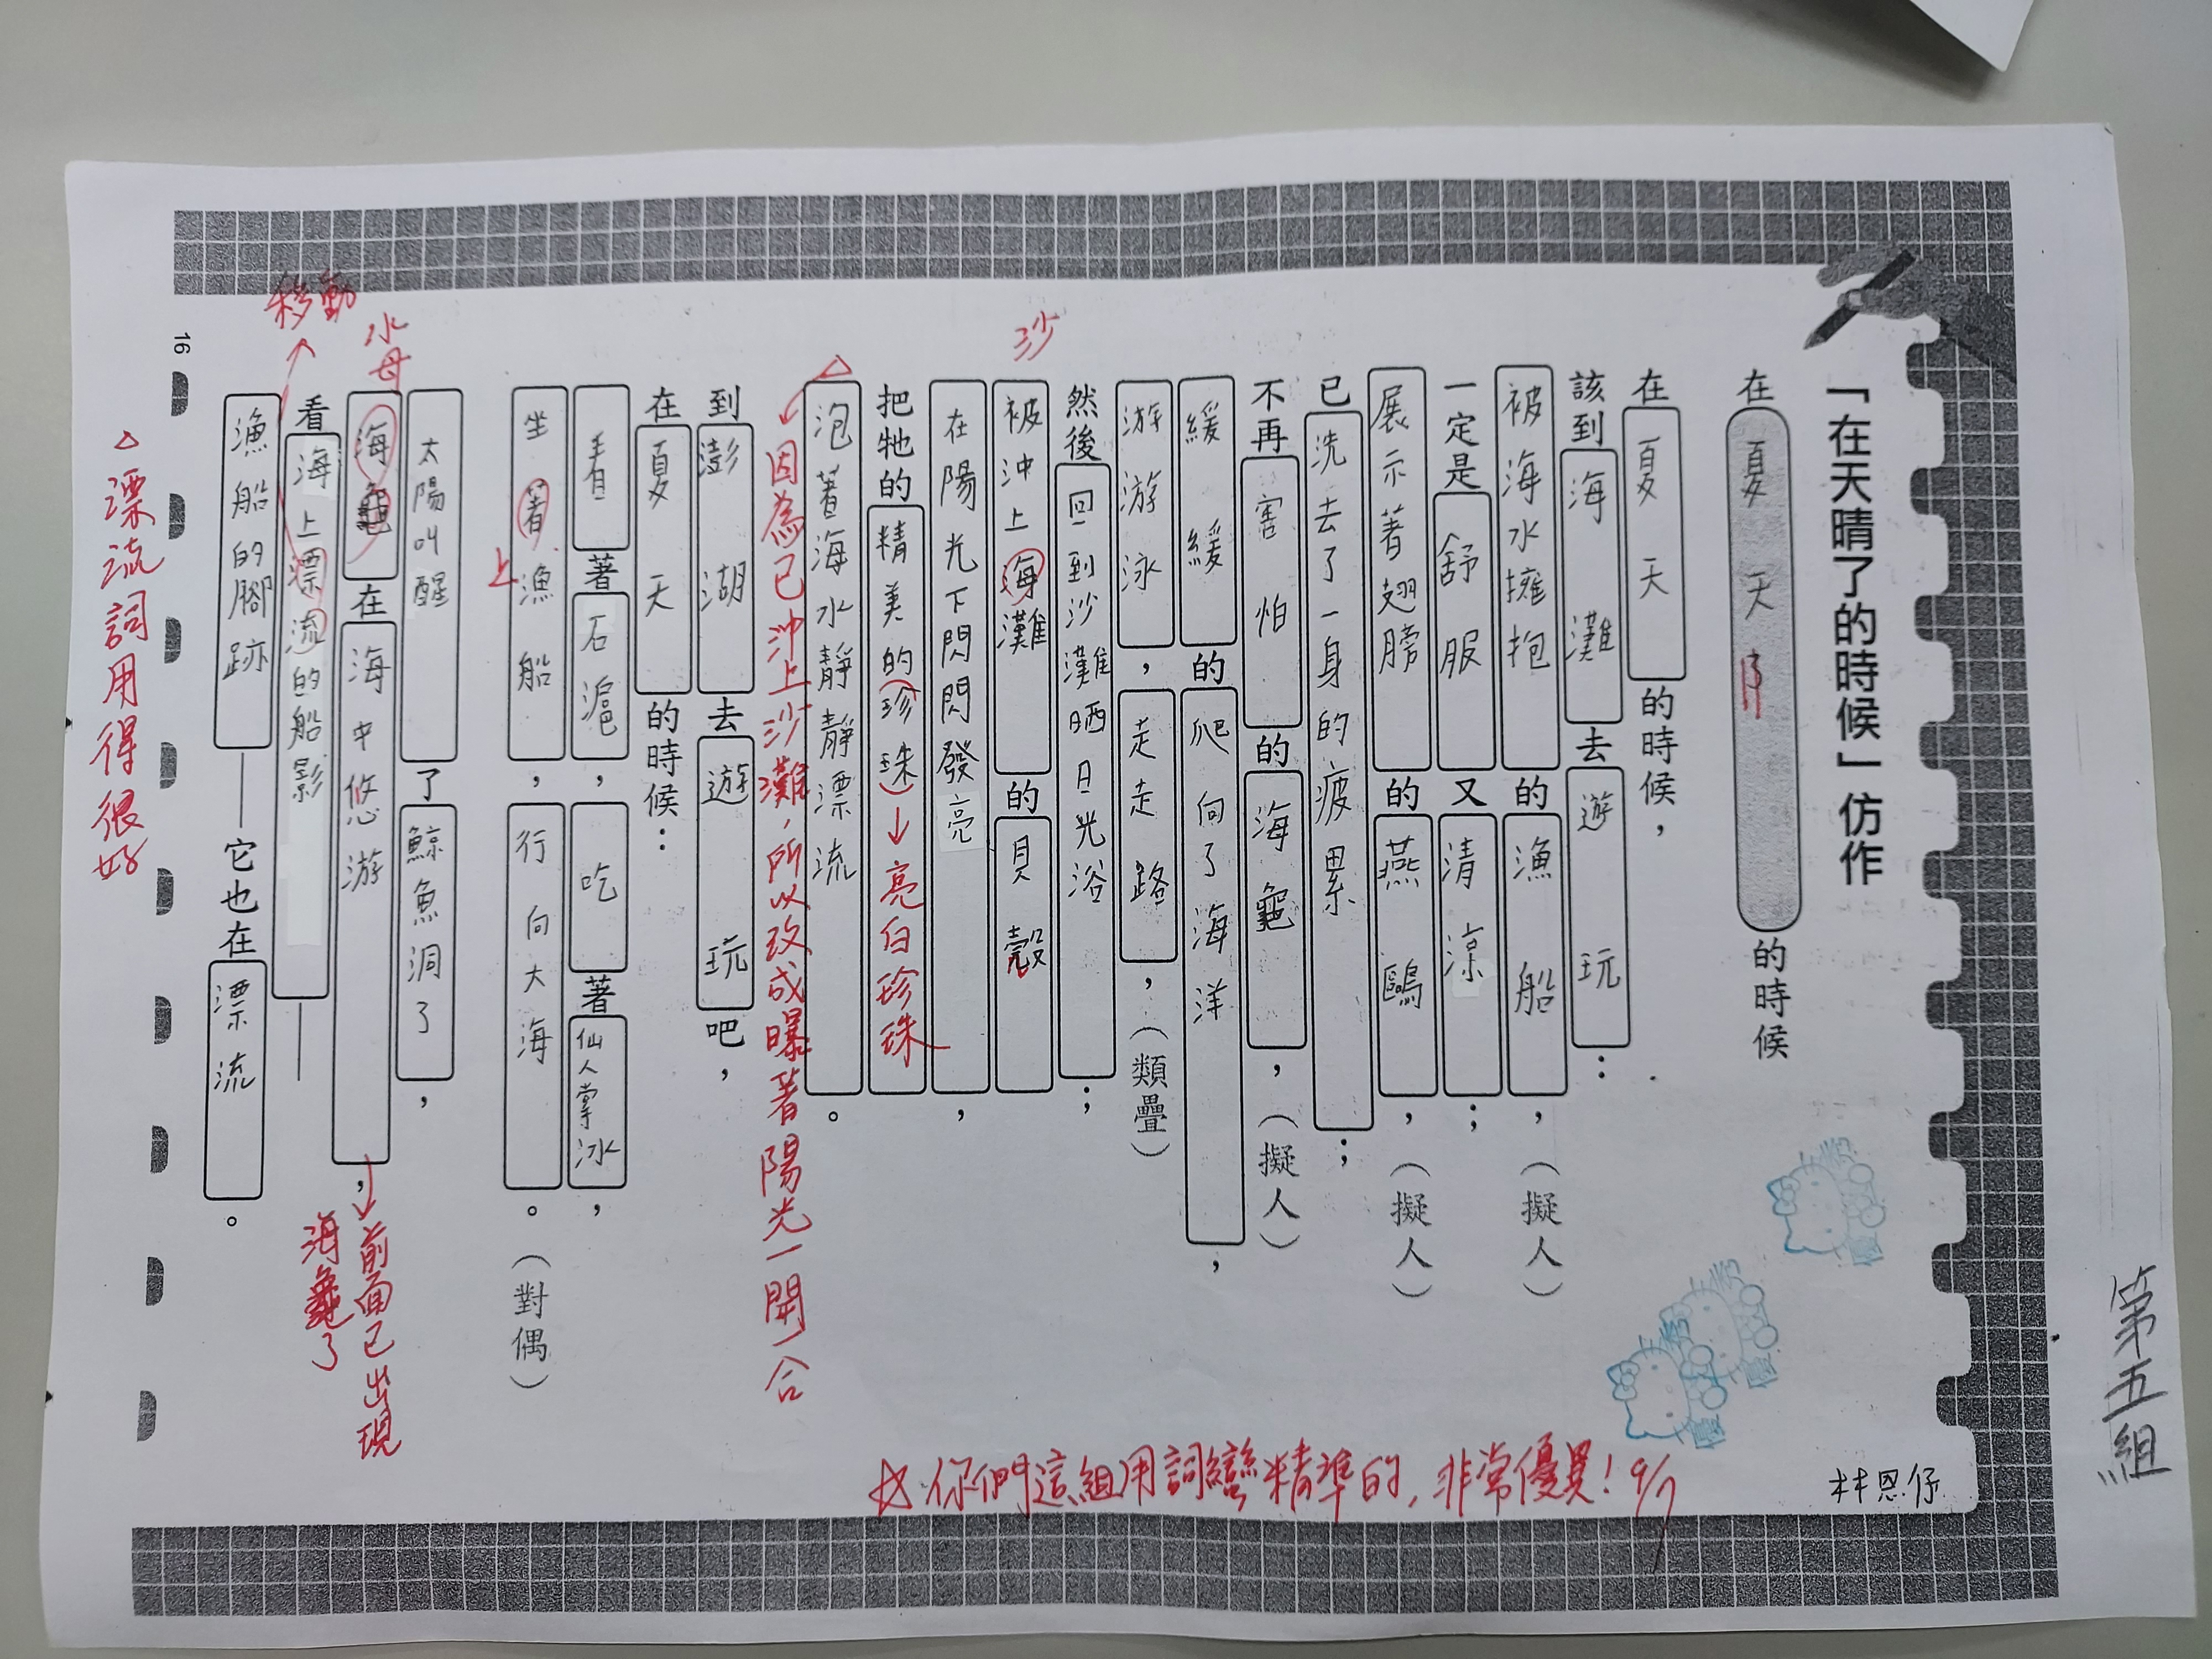 「在天晴了的時候」仿作
在夏天的時候
在夏天的時候，
該到海灘去遊玩：
被海水擁抱的漁船，（擬人）
一定是舒服又清涼；
展示著翅膀的燕鷗，（擬人）
已洗去了一身的疲累；
不再害怕的海龜，（擬人）
緩緩的爬向了海洋，
游游泳，走走路，（類疊）
然後回到沙灘晒日光浴；
被沖上海灘的貝殼
沙
在陽光下閃閃發亮，
把牠的精美的(珍珠)→亮白珍珠
泡著海水靜靜漂流。
因為已沖上沙灘，所以改成曝著陽光一開一合
到澎湖去遊玩吧，
在夏天的時候：
看著石滬，吃著仙人掌冰，
坐著漁船，行向大海。（對偶）
上
太陽叫醒了鯨魚洞了，
海龜在海中悠游，
水母
前面已出現海龜了
看海上漂流的船影——
移動
漁船的腳跡——它也在漂流。
△漂流詞用得很好
16
第五組
林恩伃
☆你們這組用詞蠻精準的，非常優異！9/7
優秀
優秀
優秀